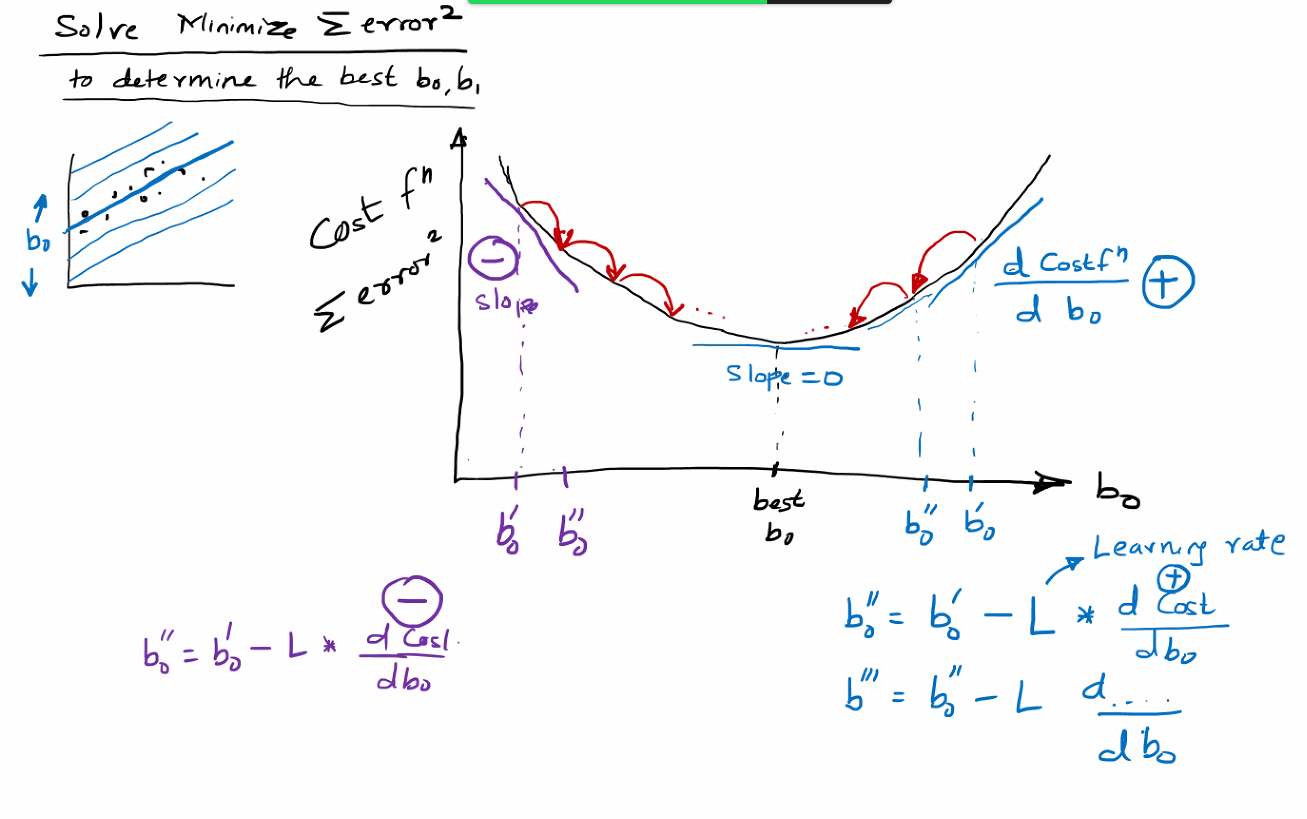 Solve Minimize Σ error²
to determine the best b₀, b₁
b₀
Cost fⁿ
Σ error²
−
slope
slope = 0
d Costfⁿ
d b₀
+
b₀′
b₀″
best
b₀
b₀″
b₀′
b₀
Learning rate
−
b₀″ = b₀′ − L * d Cost
db₀
+
b₀″ = b₀′ − L * d Cost
db₀
b‴ = b₀″ − L d....
d b₀